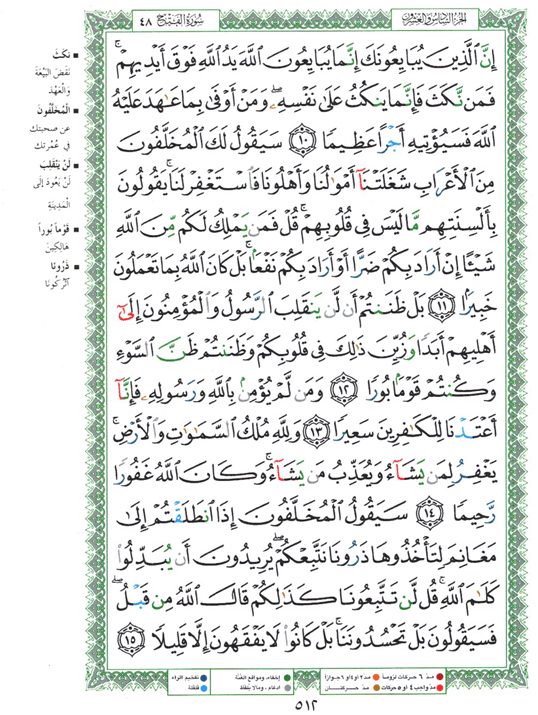 سُورَةُ الفَتْحِ ٤٨
الجزء السادس والعشرون
إِنَّ ٱلَّذِينَ يُبَايِعُونَكَ إِنَّمَا يُبَايِعُونَ ٱللَّهَ يَدُ ٱللَّهِ فَوْقَ أَيْدِيهِمْ ۚ
فَمَن نَّكَثَ فَإِنَّمَا يَنكُثُ عَلَىٰ نَفْسِهِۦ ۖ وَمَنْ أَوْفَىٰ بِمَا عَـٰهَدَ عَلَيْهُ
ٱللَّهَ فَسَيُؤْتِيهِ أَجْرًا عَظِيمًا ١٠ سَيَقُولُ لَكَ ٱلْمُخَلَّفُونَ
مِنَ ٱلْأَعْرَابِ شَغَلَتْنَآ أَمْوَٰلُنَا وَأَهْلُونَا فَٱسْتَغْفِرْ لَنَا ۚ يَقُولُونَ
بِأَلْسِنَتِهِم مَّا لَيْسَ فِى قُلُوبِهِمْ ۚ قُلْ فَمَن يَمْلِكُ لَكُم مِّنَ ٱللَّهِ
شَيْـًٔا إِنْ أَرَادَ بِكُمْ ضَرًّا أَوْ أَرَادَ بِكُمْ نَفْعًۢا ۚ بَلْ كَانَ ٱللَّهُ بِمَا تَعْمَلُونَ
خَبِيرًۢا ١١ بَلْ ظَنَنتُمْ أَن لَّن يَنقَلِبَ ٱلرَّسُولُ وَٱلْمُؤْمِنُونَ إِلَىٰٓ
أَهْلِيهِمْ أَبَدًا وَزُيِّنَ ذَٰلِكَ فِى قُلُوبِكُمْ وَظَنَنتُمْ ظَنَّ ٱلسَّوْءِ
وَكُنتُمْ قَوْمًۢا بُورًا ١٢ وَمَن لَّمْ يُؤْمِنۢ بِٱللَّهِ وَرَسُولِهِۦ فَإِنَّآ
أَعْتَدْنَا لِلْكَـٰفِرِينَ سَعِيرًا ١٣ وَلِلَّهِ مُلْكُ ٱلسَّمَـٰوَٰتِ وَٱلْأَرْضِ ۚ
يَغْفِرُ لِمَن يَشَآءُ وَيُعَذِّبُ مَن يَشَآءُ ۚ وَكَانَ ٱللَّهُ غَفُورًا
رَّحِيمًا ١٤ سَيَقُولُ ٱلْمُخَلَّفُونَ إِذَا ٱنطَلَقْتُمْ إِلَىٰ
مَغَانِمَ لِتَأْخُذُوهَا ذَرُونَا نَتَّبِعْكُمْ ۖ يُرِيدُونَ أَن يُبَدِّلُوا۟
كَلَـٰمَ ٱللَّهِ ۚ قُل لَّن تَتَّبِعُونَا كَذَٰلِكُمْ قَالَ ٱللَّهُ مِن قَبْلُ ۖ
فَسَيَقُولُونَ بَلْ تَحْسُدُونَنَا ۚ بَلْ كَانُوا۟ لَا يَفْقَهُونَ إِلَّا قَلِيلًا ١٥
■ نَكَثَ
نَقَضَ البَيْعَةَ
وَالعَهْدَ
■ المُخَلَّفُونَ
عن صحبتك
في عُمْرتك
■ لَنْ يَنْقَلِبَ
لَنْ يَعُودَ إلَى
المَدِينَةِ
■ قَوْمًا بُورًا
هَالِكِينَ
■ ذَرُونَا
اتْرُكُونَا
مدّ ٦ حركات لزوماً
مدّ ٢ أو ٤ أو ٦ جوازاً
إخفاء، ومواقع الغُنَّة
تفخيم الراء
مدّ واجب ٤ أو ٥ حركات
مدّ حركتان
ادغام، ومالا يُلفظ
قلقلة
٥١٢